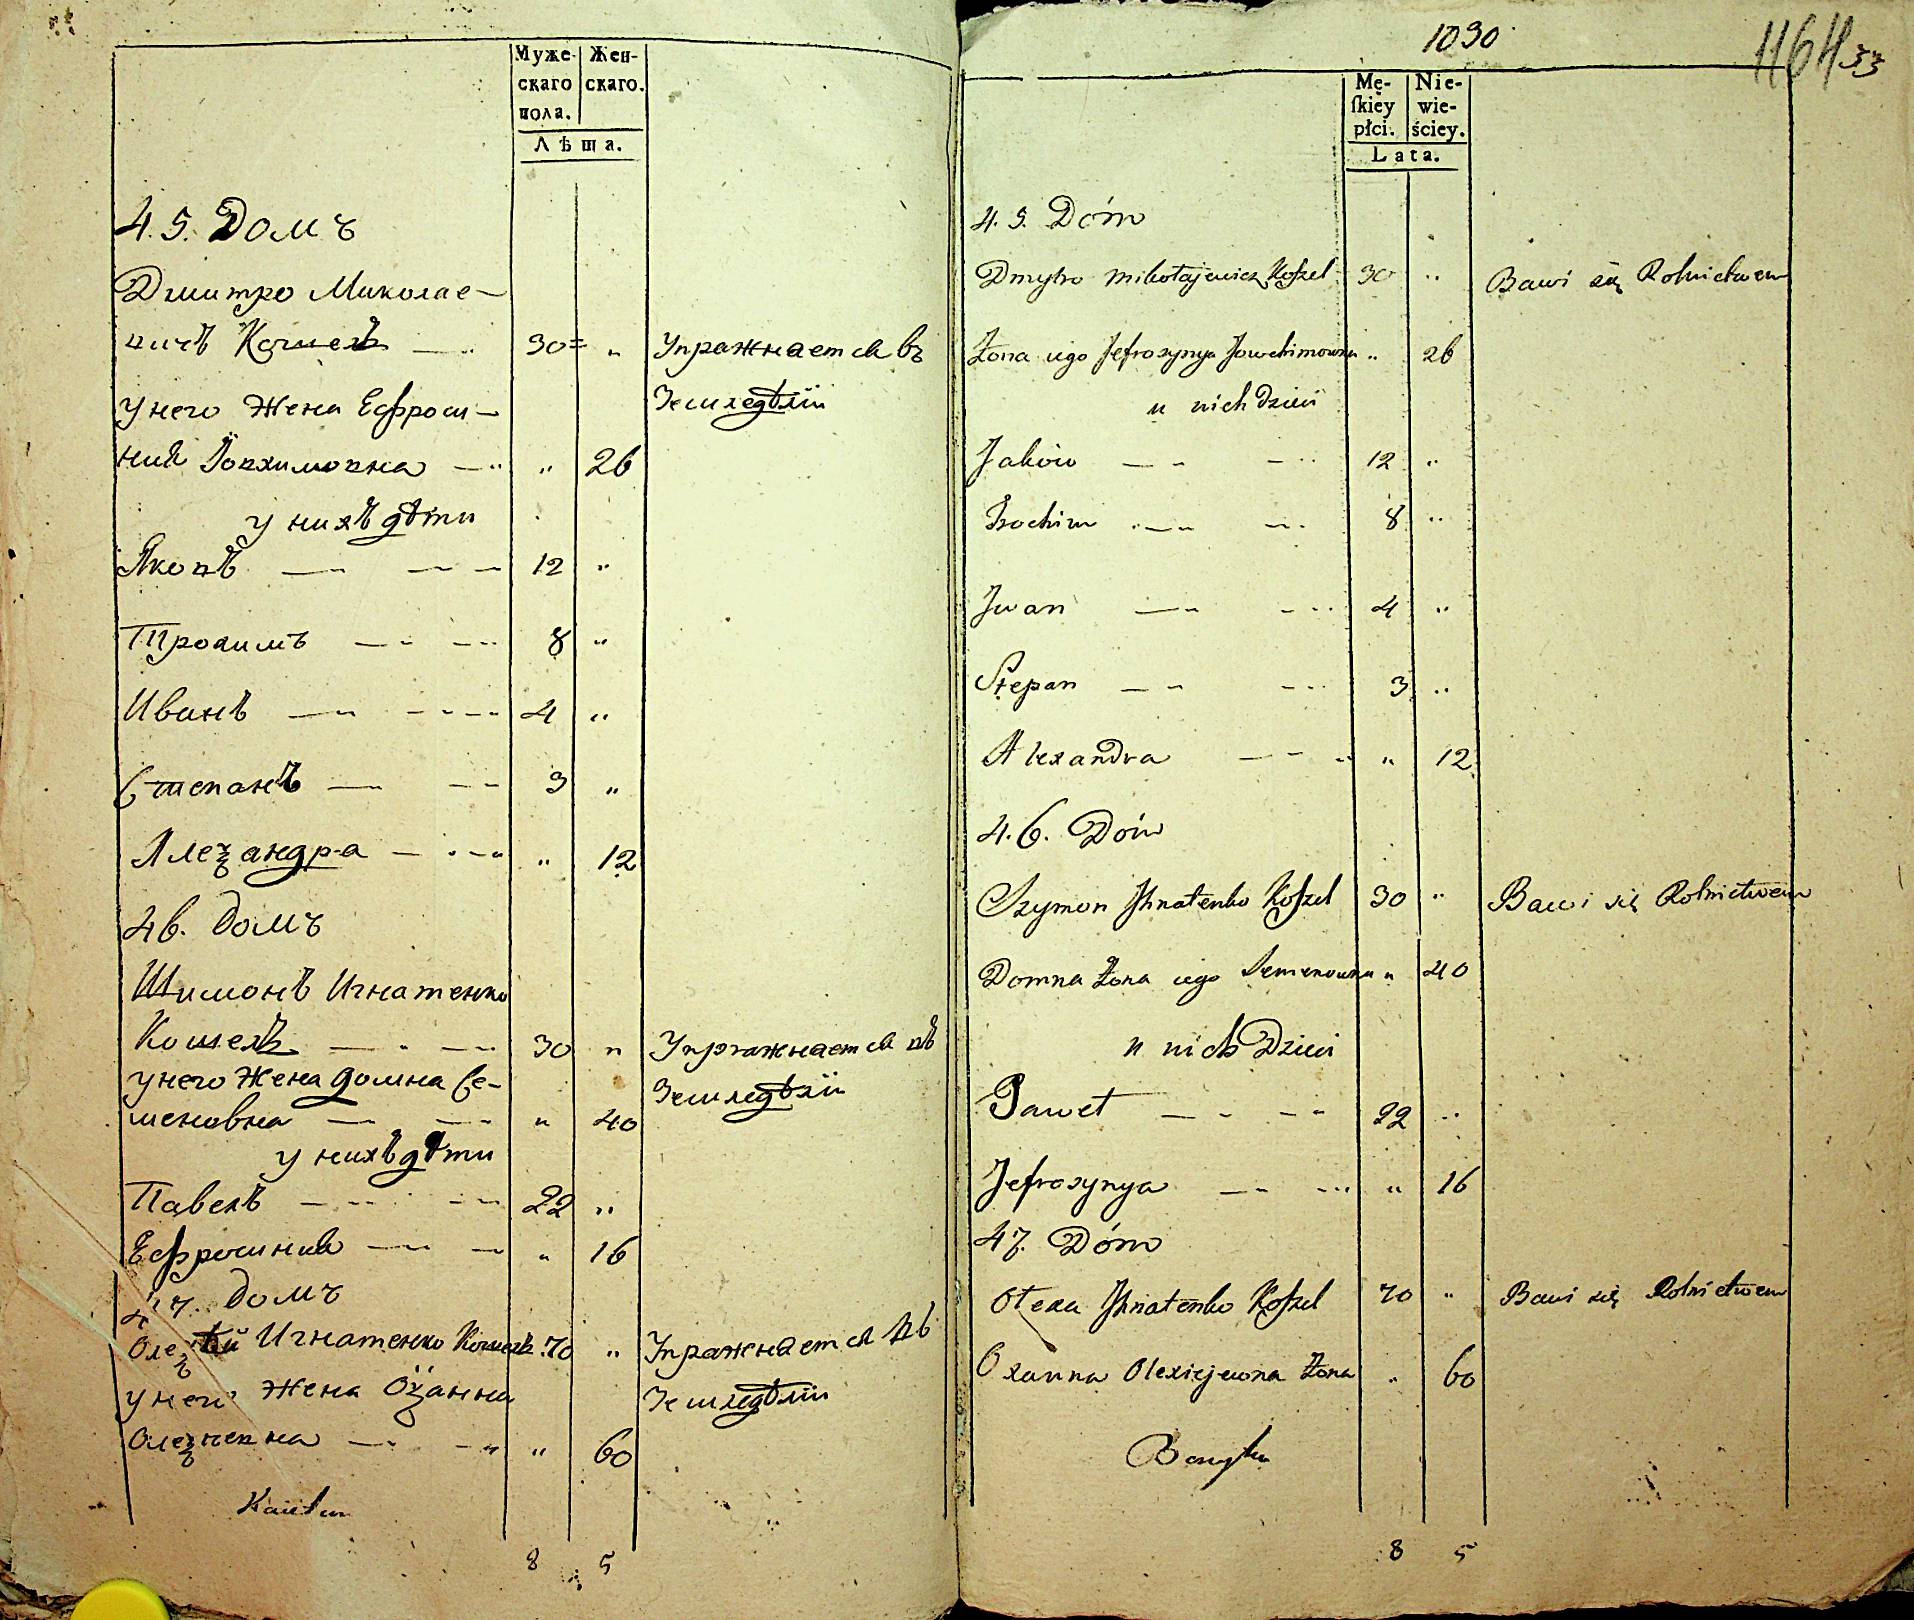 Муже-
скаго
пола.
Жен-
скаго.
Лѣта.
4.5. Домъ
Дмитро Миколае-
вичъ Кошель — 30 "
Упражнается въ
Земледѣлїи
у него Жена Ефроси-
ния Їовхимовна — " 26
у нихъ дѣти
Яковъ — 12 "
Трохимъ — 8 "
Иванъ — 4 "
Степанъ — 3 "
Алеѯандра — " 12
46. Домъ
Шимонъ Игнатенко
Кошель — 30 "
Упражнается въ
Земледѣлїи
у него Жена Домна Се-
меновна — " 40
у нихъ дѣти
Павелъ — 22 "
Ефросиния — " 16
47. Домъ
Олеѯѣй Игнатенко Кошель 70 "
Упражнается въ
Земледѣлїи
у него Жена Оѯанна
Олеѯиевна — " 60
8 5
1030
1164
33
Mę-
ſkiey
płci.
Nie-
wie-
ściey.
Lata.
4.5. Dóm
Dmytro Mikołajewicz Koſzel 30 "
Bawi się Rolnictwem
Żona iego Jefrosynya Jowchimowna " 26
u nich dzieci
Jaków — 12 "
Trochim — 8 "
Iwan — 4 "
Stepan — 3 "
Alexandra — " 12
4.6. Dóm
Szymon Ihnatenko Koſzel 30 "
Bawi się Rolnictwem
Domna Żona iego Semenowna " 40
u nich Dzieci
Paweł — 22 "
Jefrosynya — " 16
47. Dóm
Ołexa Ihnatenko Koſzel 70 "
Bawi się Rolnictwem
Oxanna Olexiejewna Żona " 60
8 5